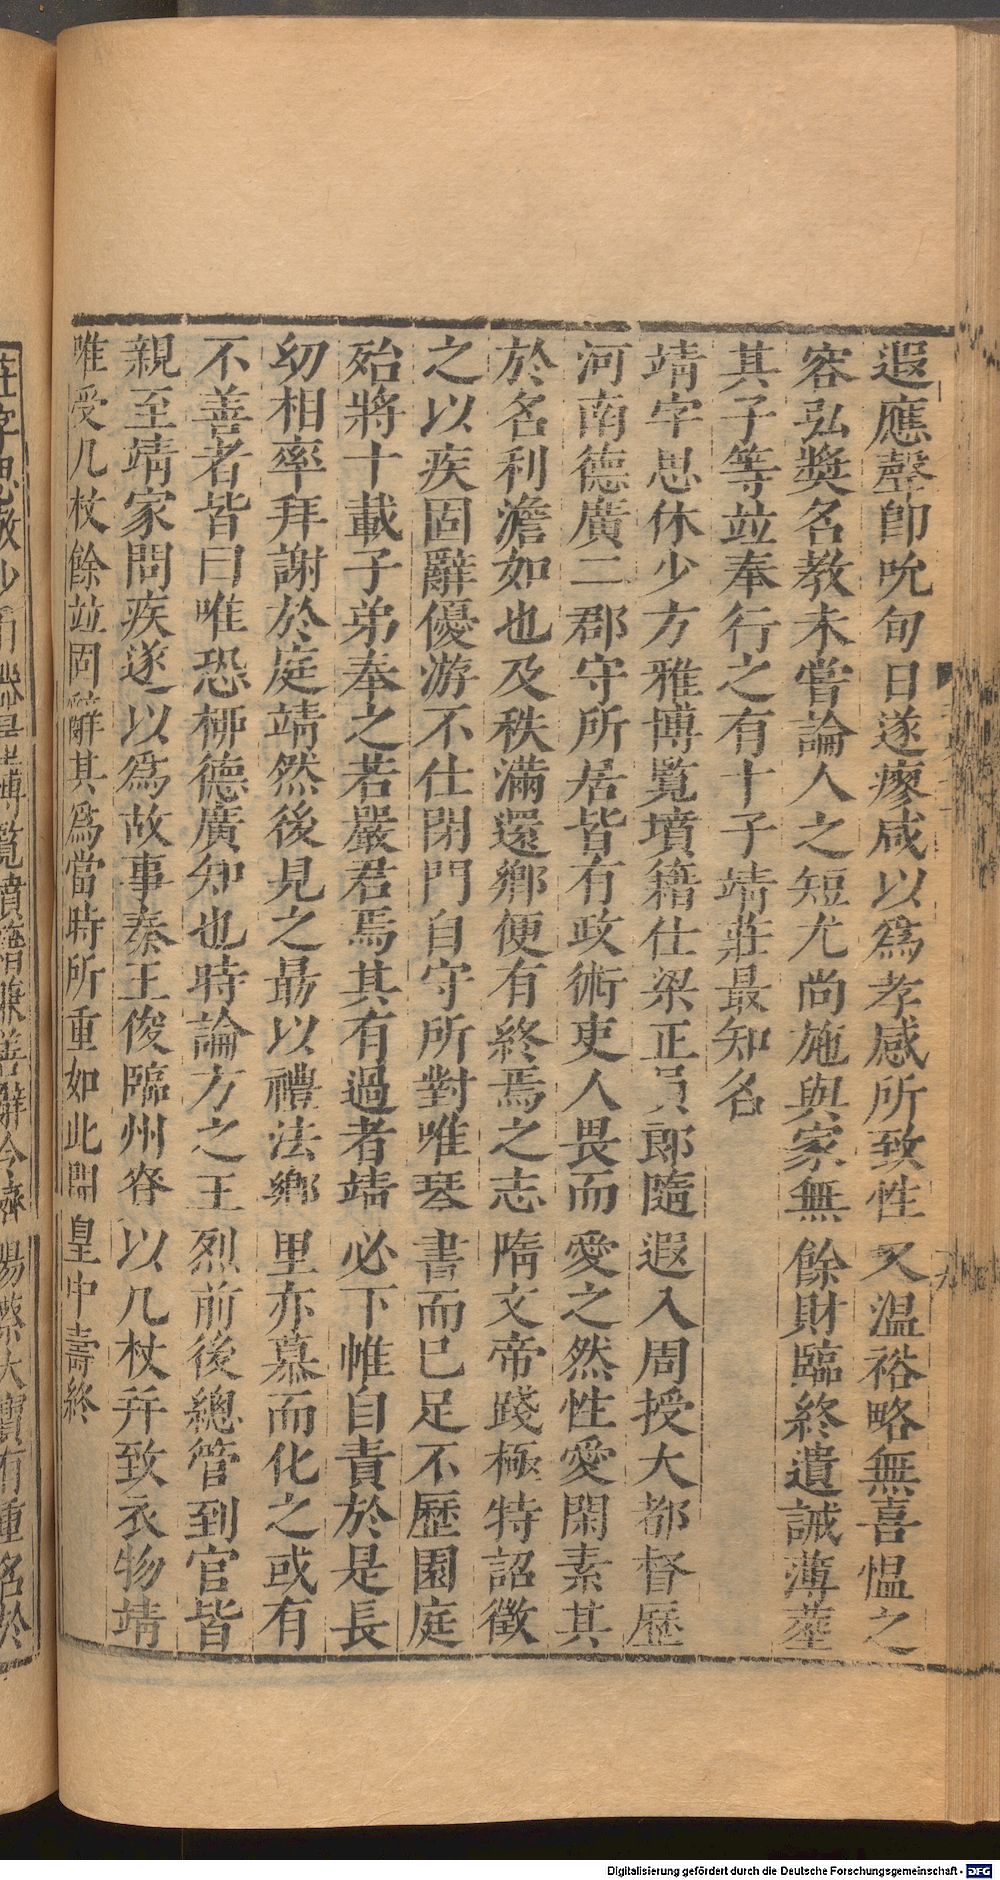 遐應聲卽吮旬日遂瘳咸以爲孝感所致性又溫裕略無喜慍之
容弘奬名教未嘗論人之短尤尚施與家無餘財臨終遺誡薄葬
其子等竝奉行之有十子靖莊最知名
靖字思休少方雅博覧墳籍仕梁正員郎隨遐入周授大都督歷
河南德廣二郡守所居皆有政術吏人畏而愛之然性愛閑素其
於名利澹如也及秩滿還鄉便有終焉之志隋文帝踐極特詔徵
之以疾固辭優游不仕閉門自守所對唯琴書而已足不歷園庭
殆將十載子弟奉之若嚴君焉其有過者靖必下帷自責於是長
㓜相率拜謝於庭靖然後見之勗以禮法鄉里亦慕而化之或有
不善者皆曰唯恐柳德廣知也時論方之王烈前後總管到官皆
親至靖家問疾遂以爲故事秦王俊臨州賚以几杖幷致衣物靖
唯受几杖餘竝固辭其爲當時所重如此開皇中壽終